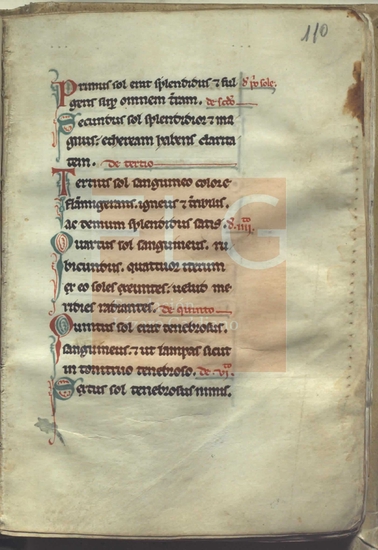 110
Primus sol erit splendidus ⁊ ful
gens sup omnem t̄ram. de scd̄o
Secundus sol splendidior ⁊ ma
gnus. etheream habens clarita
tem. de tertio
Tertius sol sanguineo colore
flāmigerans. igneus ⁊ t̄ribilis.
ac demum splendidus satis. d. iiii.to
Quartus sol sanguineus. ru
bicundus. quattuor iterum
ex eo soles exeuntes. velud me
ridies radiantes. de quinto
Quintus sol erit tenebrosus.
sanguineus. ⁊ ut lampas sicut
in tonitruo tenebroso. de .vi.to
Sextus sol tenebrosus nimis.